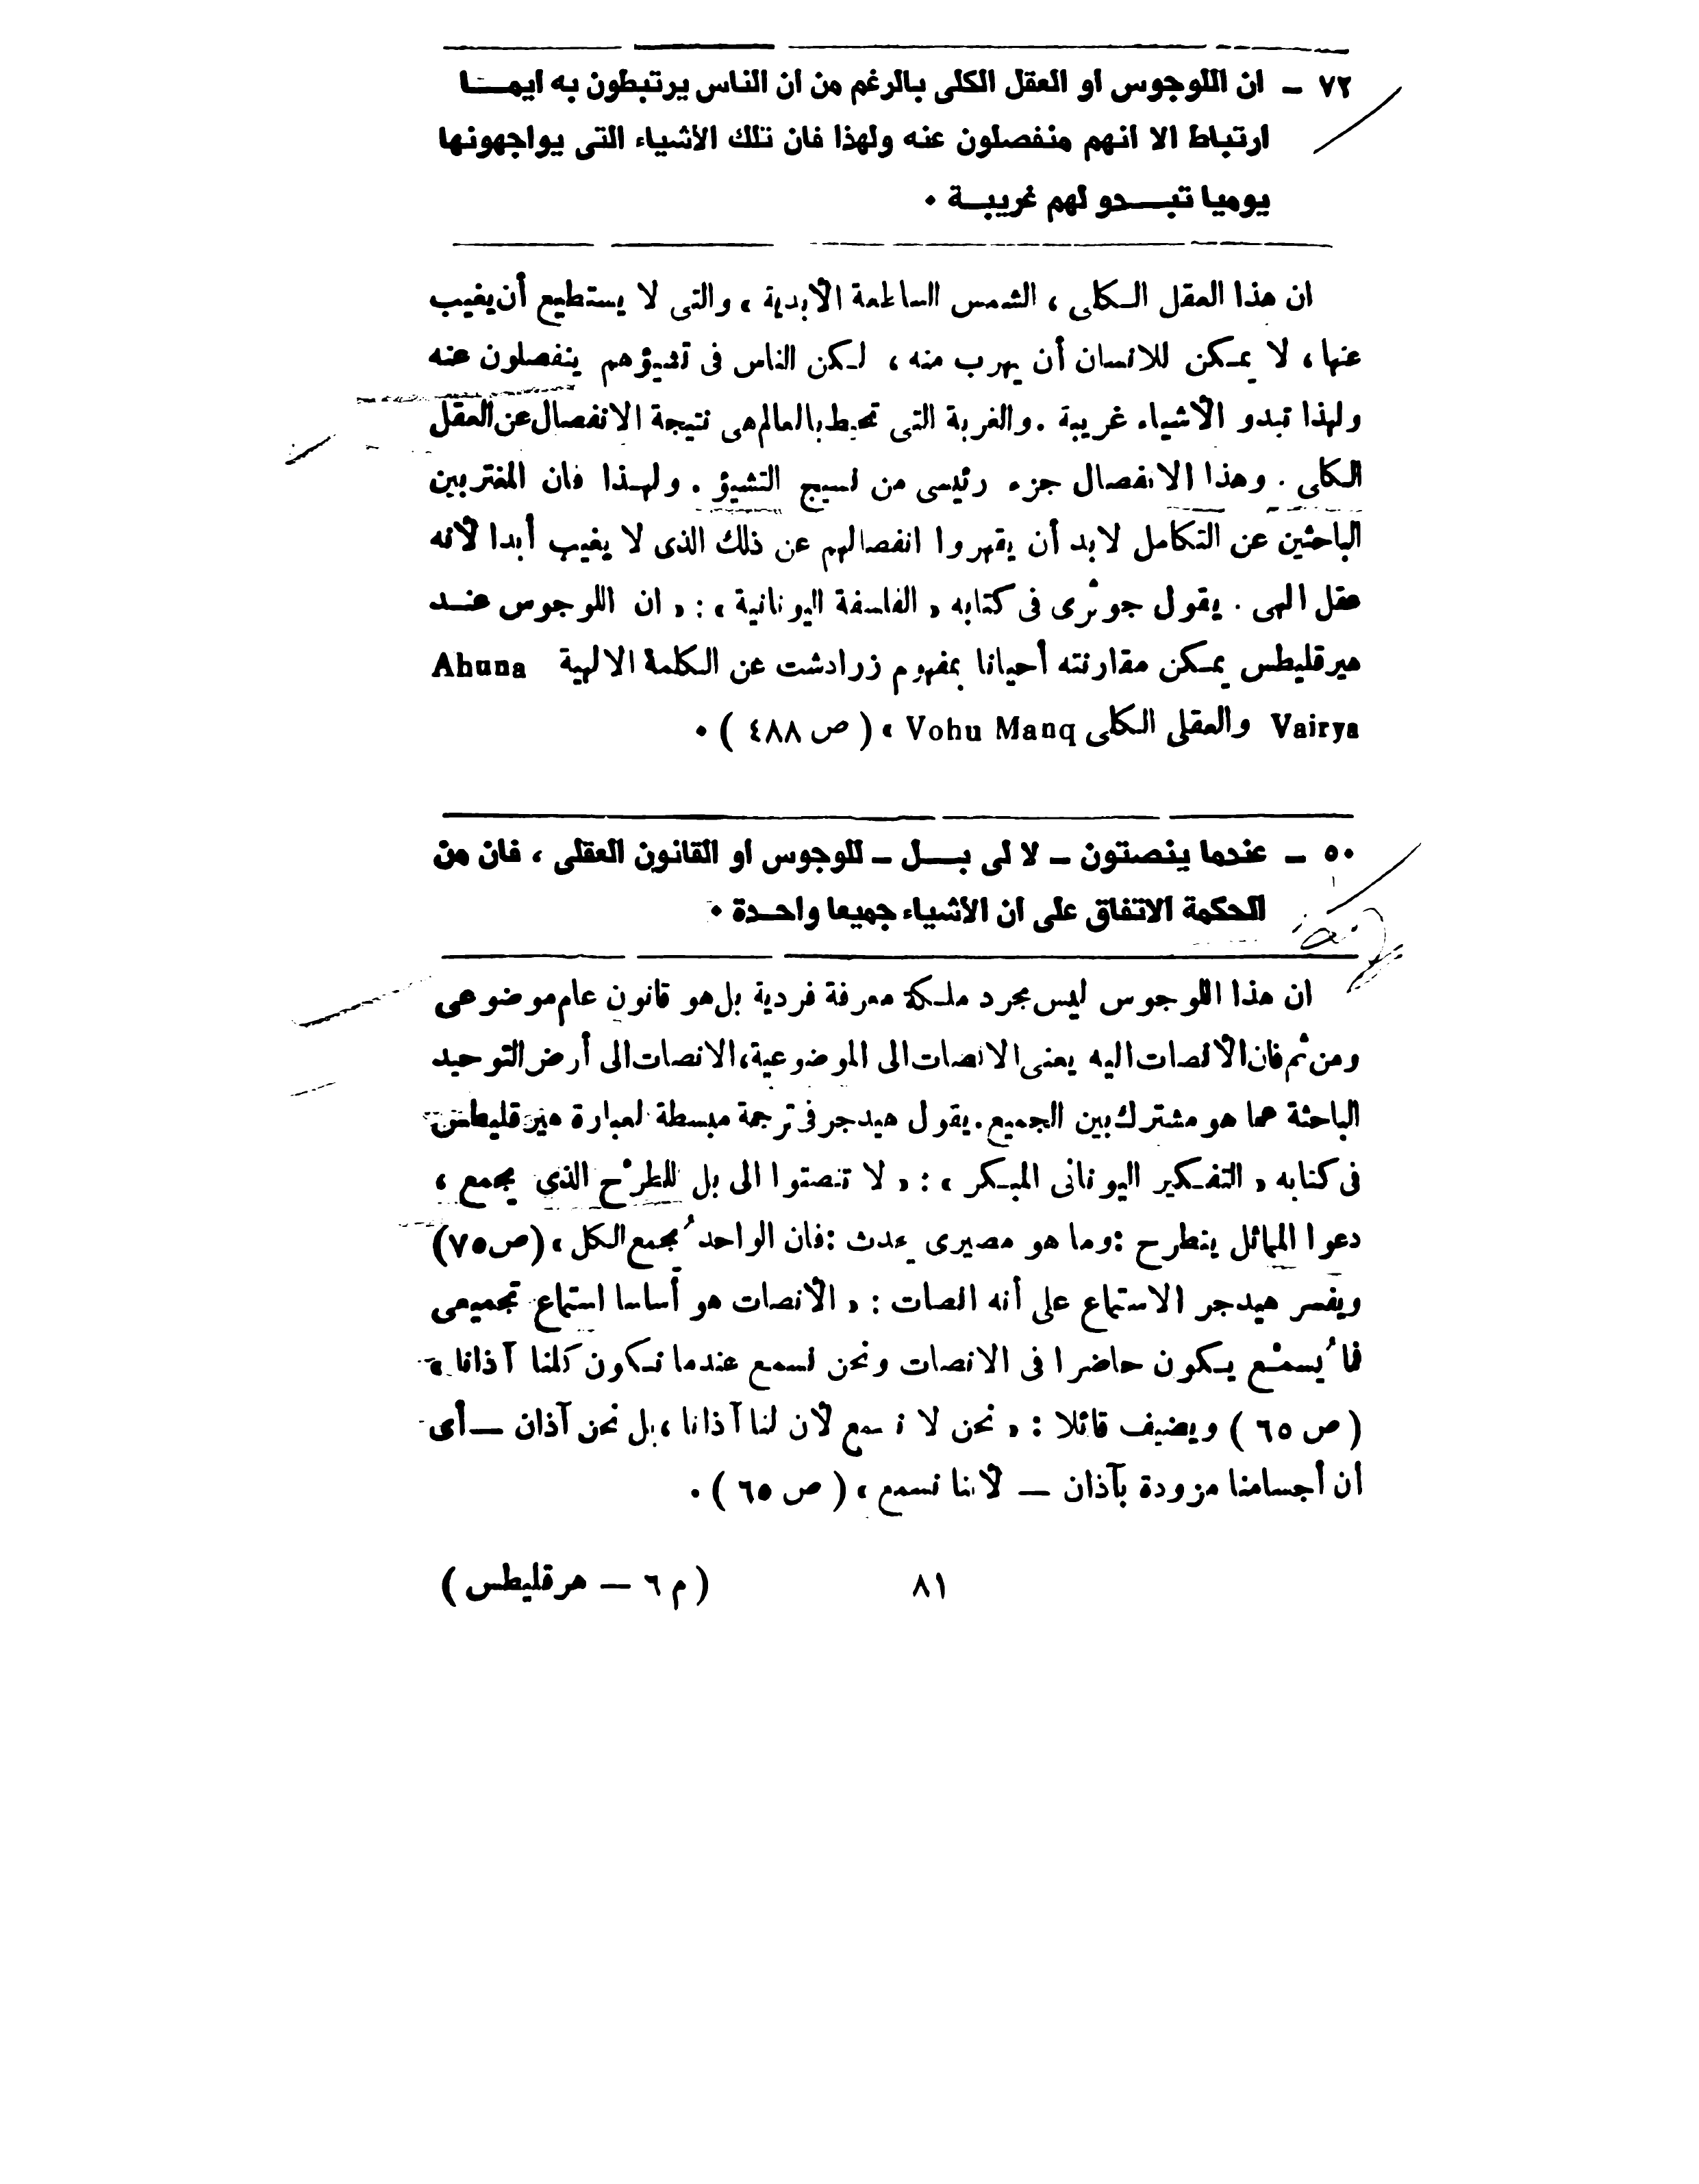 ٧٢ – ان اللوجوس او العقل الكلى بالرغم من ان الناس يرتبطون به ايمـــا
ارتباط الا انهم منفصلون عنه ولهذا فان تلك الأشياء التى يواجهونها
يوميا تبـــدو لهم غريبـــة ٠
ان هذا العقل الـكلى ، الشمس الساطعة الأبدية ، والتى لا يستطيع أن يغيب
عنها ، لا يمـكن للانسان أن يهرب منه ، لـكن الناس فى تشيؤهم ينفصلون عنه
ولهذا تبدو الأشياء غريبة . والغربة التى تحيط بالعالم هى نتيجة الانفصال عن العقل
الـكلى . وهذا الانفصال جزء رئيسى من نسيج التشيؤ . ولهـذا فان المغتربين
الباحثين عن التكامل لابد أن يقهروا انفصالهم عن ذلك الذى لا يغيب أبدا لأنه
عقل الهى . يقول جوثرى فى كتابه « الفلسفة اليونانية » : « ان اللوجوس عنـد
هيرقليطس يمـكن مقارنته أحيانا بمفهوم زرادشت عن الـكلمة الالهية Ahuna
Vairya والعقلى الـكلى Vohu Manq » ( ص ٤٨٨ ) ٠
٥٠ – عندما ينصتون – لا لى بـــل – للوجوس او القانون العقلى ، فان من
الحكمة الاتفاق على ان الأشياء جميعا واحـدة ٠
ان هذا اللوجوس ليس مجرد ملـكة معرفة فردية بل هو قانون عام موضوعى
ومن ثم فان الأنصات اليه يعنى الانصات الى الموضوعية، الانصات الى أرض التوحيد
الباحثة عما هو مشترك بين الجميع . يقول هيدجر فى ترجمة مبسطة لعبارة هيرقليطس
فى كتابه « التفـكير اليونانى المبـكر » : « لا تنصتوا الى بل للطرْح الذى يجمع ،
دعوا الماثل ينطرح : وما هو مصيرى يحدث : فان الواحد ُيجمع الـكل » (ص ٧٥)
ويفسر هيدجر الاستماع على أنه انصات : « الأنصات هو أساسا استماع تجميعى
فما ُيسمْع يـكون حاضرا فى الانصات ونحن نسمع عندما نـكون كلنا آذانا »
( ص ٦٥ ) ويضيف قائلا : « نحن لا نسمع لأن لنا آذانا ، بل نحن آذان — أى
أن أجسامنا مزودة بآذان — لأننا نسمع » ( ص ٦٥ ) ٠
٨١
( م ٦ — هرقليطس )